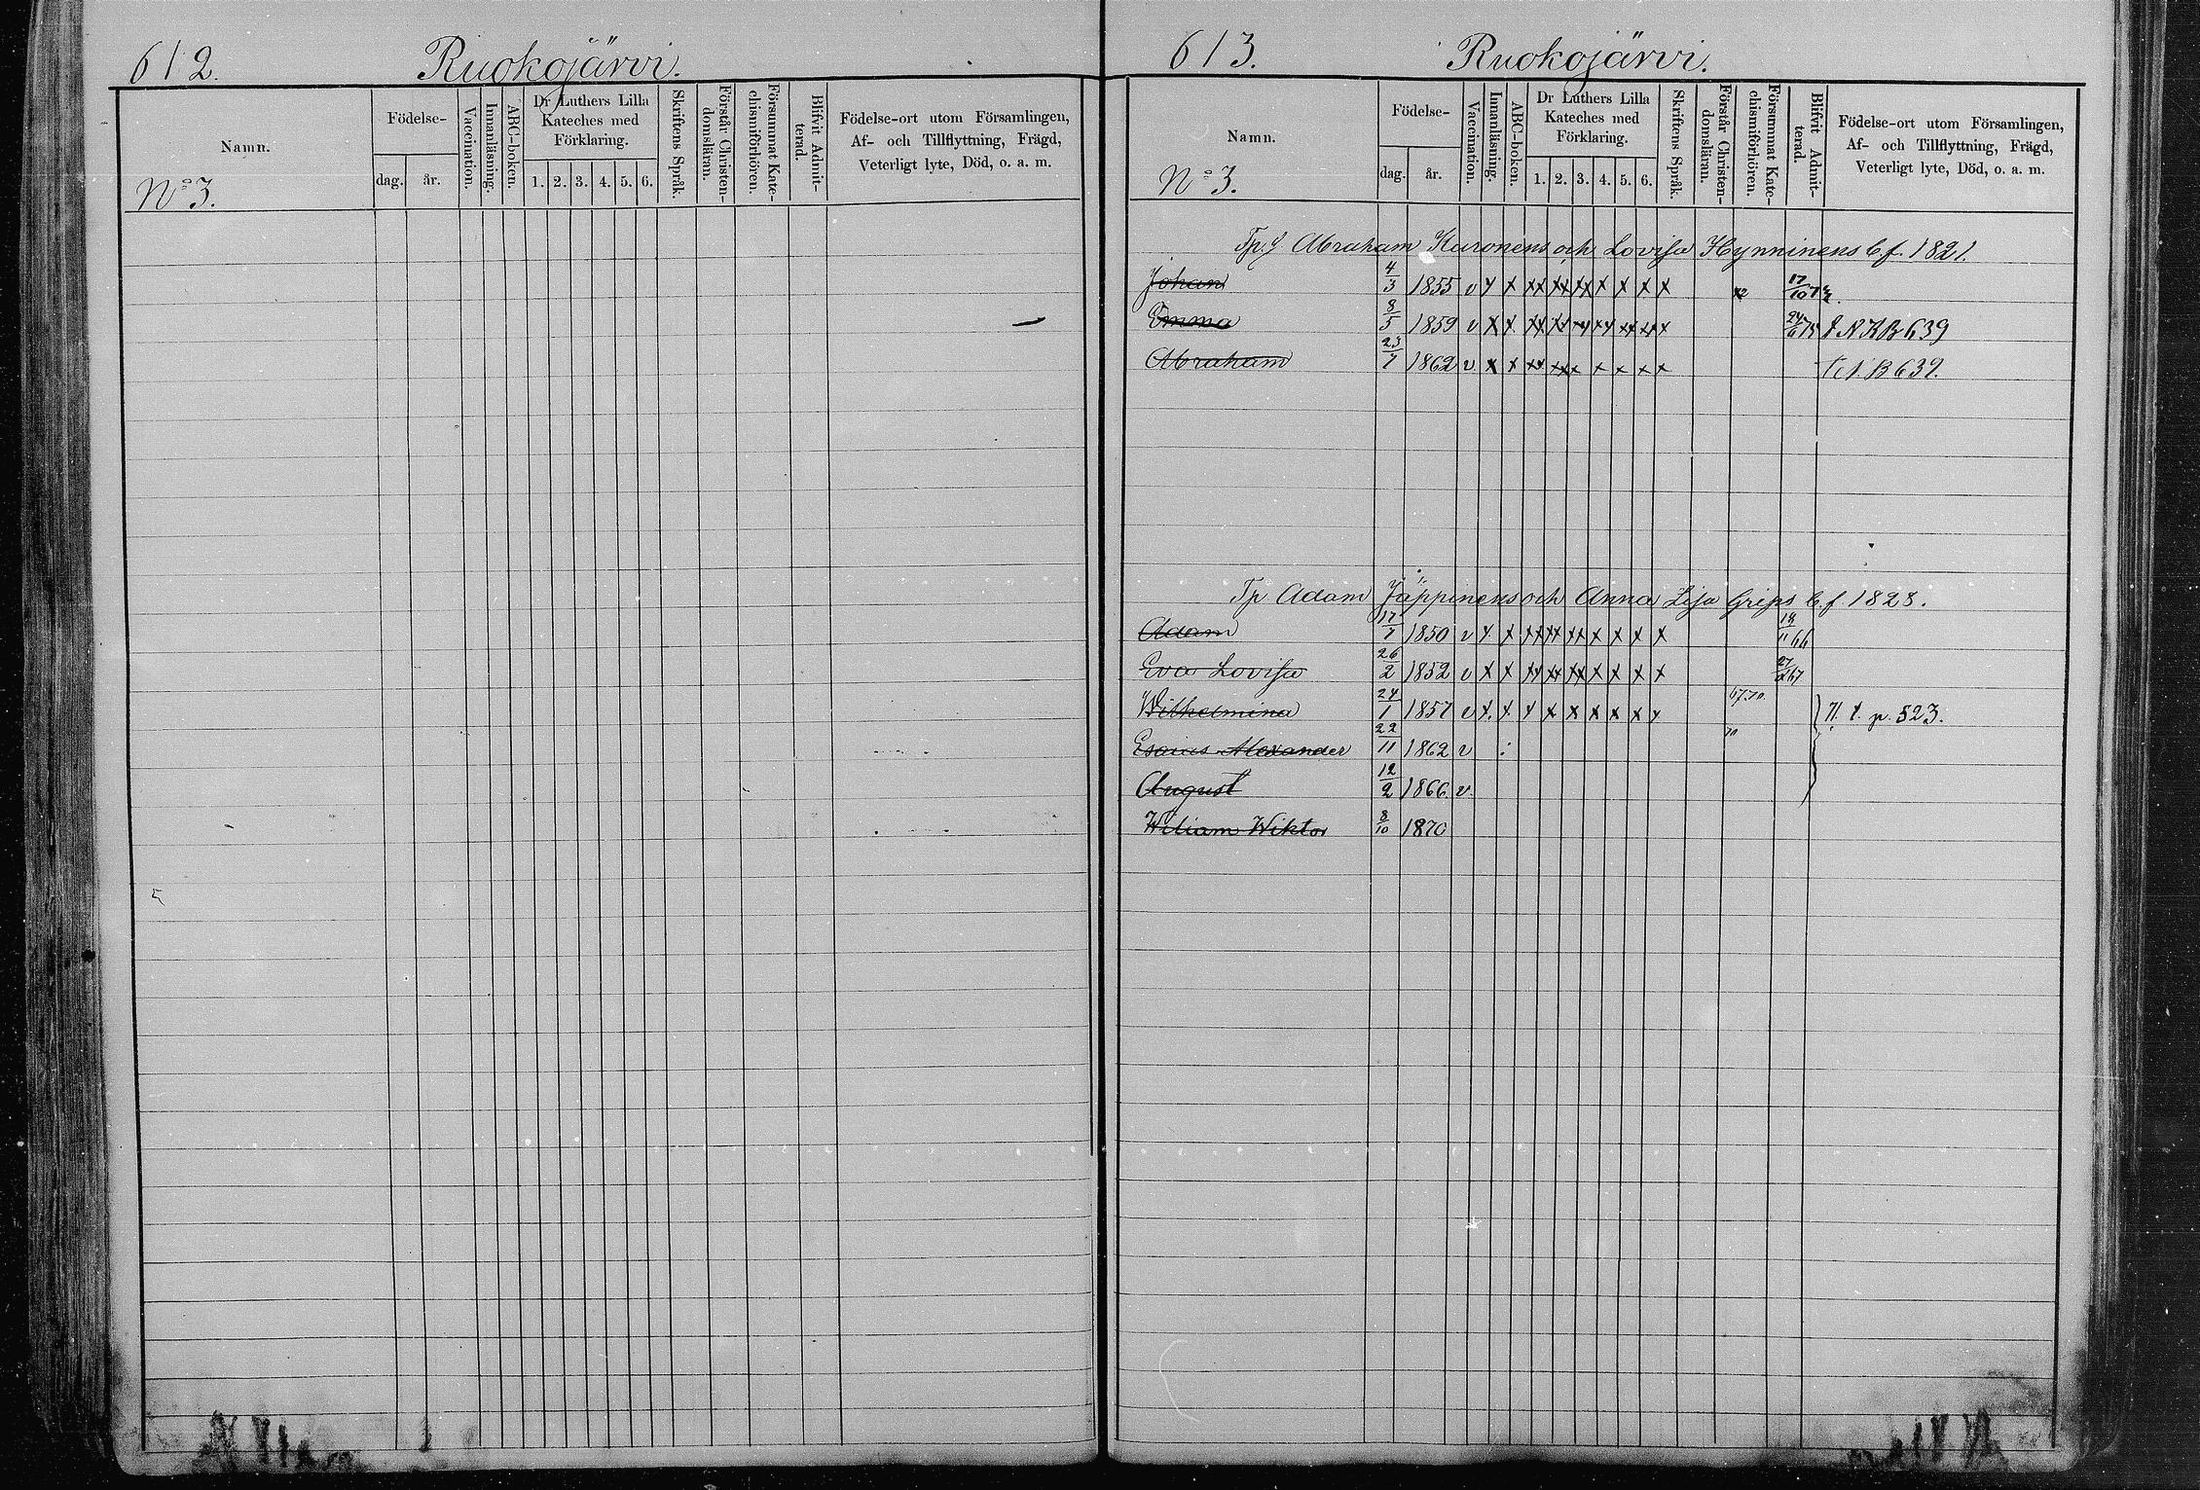 612. Ruokojärvi.
Namn.
Födelse-
dag. år.
Vaccination.
Innanläsning.
ABC-boken.
Dr Luthers Lilla
Kateches med
Förklaring.
1. 2. 3. 4. 5. 6.
Skriftens Språk.
Förstår Christen-
domsläran.
Försummat Kate-
chismiförhören.
Blifvit Admit-
terad.
Födelse-ort utom Församlingen,
Af- och Tillflyttning, Frägd,
Veterligt lyte, Död, o. a. m.
No 3.
613. Ruokojärvi.
Namn.
Födelse-
dag. år.
Vaccination.
Innanläsning.
ABC-boken.
Dr Luthers Lilla
Kateches med
Förklaring.
1. 2. 3. 4. 5. 6.
Skriftens Språk.
Förstår Christen-
domsläran.
Försummat Kate-
chismiförhören.
Blifvit Admit-
terad.
Födelse-ort utom Församlingen,
Af- och Tillflyttning, Frägd,
Veterligt lyte, Död, o. a. m.
No 3.
Abraham Karonens och Lovisa Hynninens b. f. 1821.
Johan 4/3 1855 v x x xx xx xx x x x x 17/10
Emma 8/5 1859 v x x xx xx xx xx xx xx x 24/6 75 N.K.B 639
Abraham 23/7 1862 v x x xx xx x x x x x B 639.
Tp Adam Jäppinens och Anna Lisa Grips b. f. 1828.
Adam 17/7 1850 v x x xx xx xx x x x x 18/11 66
Eva Lovisa 26/2 1852 v x x xx xx xx x x x x 27/ 67
Wilhelmina 24/1 1857 v x x x x x x x x x 67.70. p. 523.
Esaias Alexander 22/11 1862 v 70
August 12/2 1866 v.
Wiliam Wiktor 8/10 1870